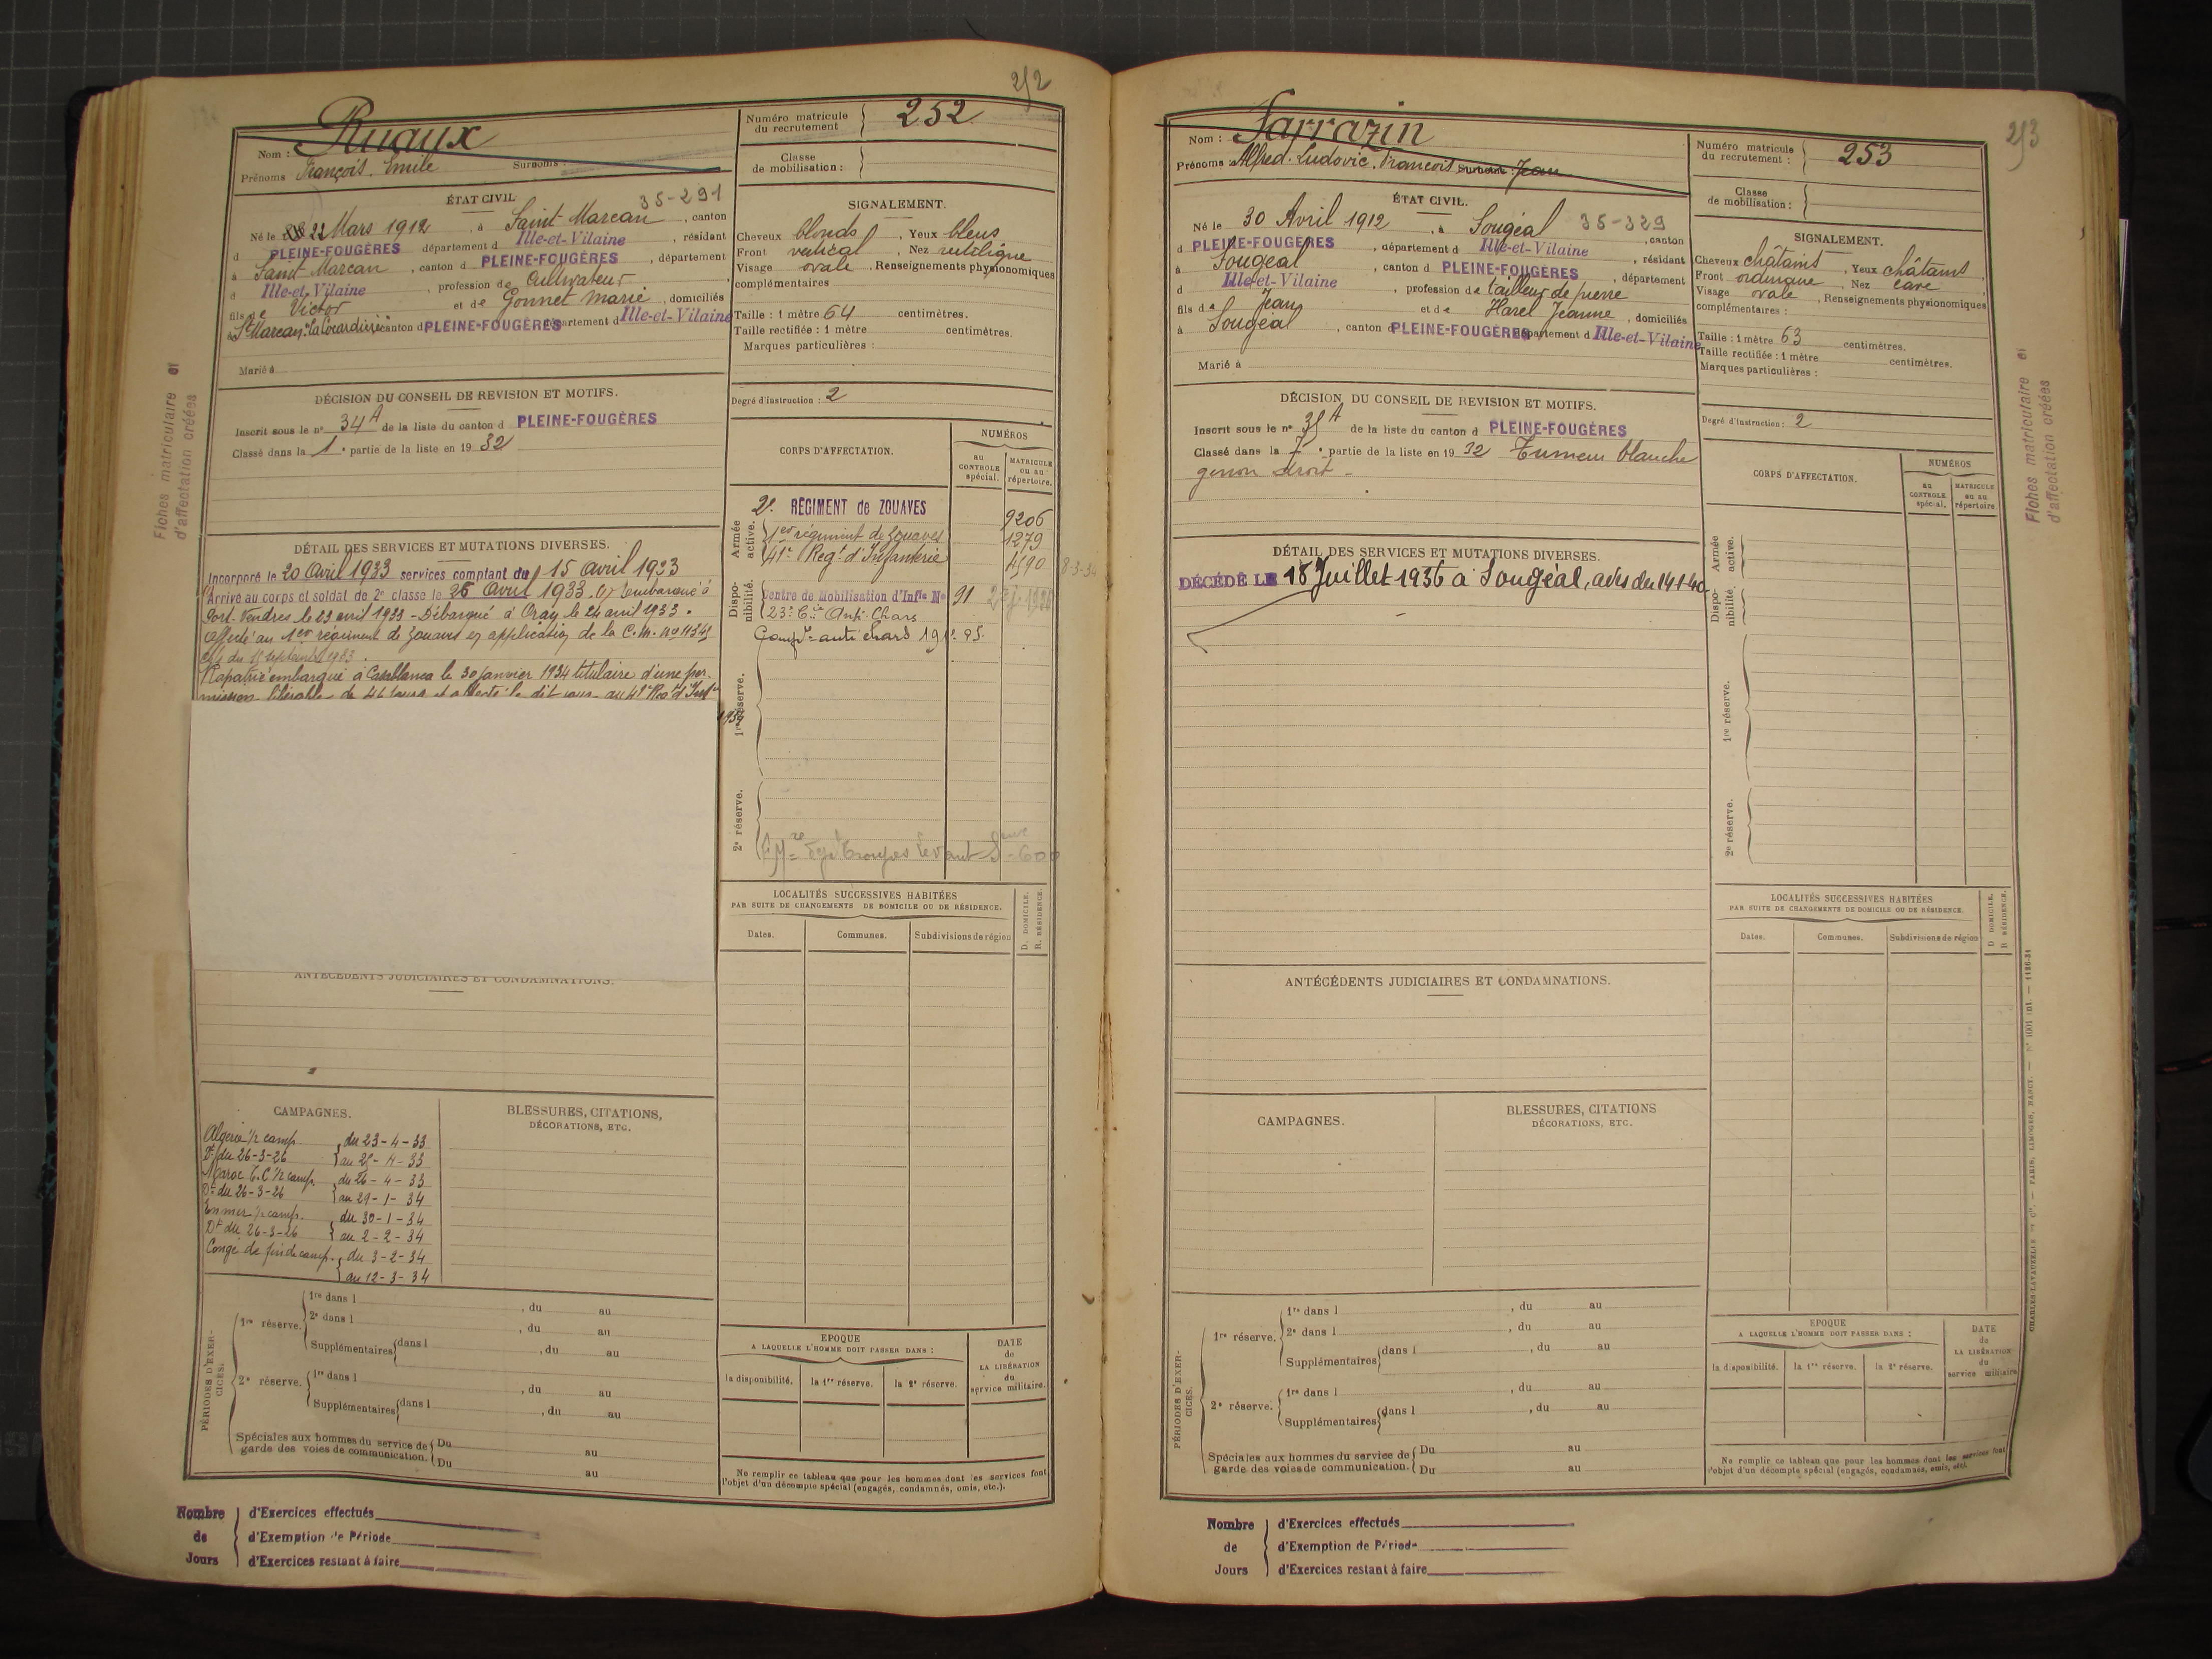 252
Ruaux
Nom :
Prénoms François. Emile Surnoms :
Numéro matricule du recrutement 252
Classe de mobilisation :
ÉTAT CIVIL
35-291
Né le 22 Mars 1912, à Saint Marcan, canton
d PLEINE-FOUGÈRES département d Ille-et-Vilaine, résidant
à Saint Marcan, canton d PLEINE-FOUGÈRES, département
d Ille-et-Vilaine, profession de Cultivateur
fils de Victor et de Gonnet Marie, domiciliés
à St Marcan canton d PLEINE-FOUGÈRES département d Ille-et-Vilaine
Marié à
SIGNALEMENT.
Cheveux blonds, Yeux bleus
Front vertical, Nez rectiligne
Visage ovale, Renseignements physionomiques
complémentaires
Taille : 1 mètre 64 centimètres.
Taille rectifiée : 1 mètre centimètres.
Marques particulières :
Degré d'instruction : 2
DÉCISION DU CONSEIL DE REVISION ET MOTIFS.
Inscrit sous le nº 34A de la liste du canton d PLEINE-FOUGÈRES
Classé dans la 1e partie de la liste en 1932
Fiches matriculaire et
d'affectation créées
DÉTAIL DES SERVICES ET MUTATIONS DIVERSES.
Incorporé le 20 Avril 1933 services comptant du 15 avril 1933
Arrivé au corps et soldat de 2e classe le 26 Avril 1933. Embarqué à
Port-Vendres le 23 avril 1933 - Débarqué à Oran le 24 avril 1933.
Affecté au 1er régiment de Zouaves en application de la C.M. nº 11345
du 15 septembre 1933.
Rapatrié embarqué à Casablanca le 30 janvier 1934 titulaire d'une per-
mission libérable de
1934
CORPS D'AFFECTATION.
NUMÉROS
au CONTROLE spécial.
MATRICULE ou au répertoire.
Armée active.
2e RÉGIMENT de ZOUAVES 9206
1er régiment de Zouaves 1279
41e Regt d'Infanterie 4590 8-3-34
Dispo-nibilité.
Centre de Mobilisation d'Infie Nº 91
23e Cie Anti-Chars
Compie anti chars
1re réserve.
2e réserve.
LOCALITÉS SUCCESSIVES HABITÉES
PAR SUITE DE CHANGEMENTS DE DOMICILE OU DE RÉSIDENCE.
D. DOMICILE. R. RÉSIDENCE.
Dates. Communes. Subdivisions de région
ANTÉCÉDENTS JUDICIAIRES ET CONDAMNATIONS.
CAMPAGNES.
BLESSURES, CITATIONS,
DÉCORATIONS, ETC.
Algérie 1/2 camp. du 23-4-33
Dt du 26-3-26 au 25-4-33
Maroc T.C 1/2 camp. du 26-4-33
Dt du 26-3-26 au 29-1-34
En mer 1/2 camp. du 30-1-34
Dt du 26-3-26 au 2-2-34
Congé de fin de camp. du 3-2-34
au 12-3-34
PÉRIODES D'EXERCICES.
1re réserve.
1re dans l , du au
2e dans l , du au
Supplémentaires dans l , du au
2e réserve.
1re dans l , du au
Supplémentaires dans l , du au
Spéciales aux hommes du service de
garde des voies de communication.
Du au
Du au
EPOQUE
A LAQUELLE L'HOMME DOIT PASSER DANS :
la disponibilité. la 1re réserve. la 2e réserve.
DATE de LA LIBÉRATION du service militaire.
Ne remplir ce tableau que pour les hommes dont les services font
l'objet d'un décompte spécial (engagés, condamnés, omis, etc.).
Nombre de Jours
d'Exercices effectués
d'Exemption de Période
d'Exercices restant à faire
253
Sarrazin
Nom :
Prénoms : Alfred. Ludovic. François Surnoms : Jean
Numéro matricule du recrutement : 253
Classe de mobilisation :
ÉTAT CIVIL.
Né le 30 Avril 1912, à Sougéal 35-329, canton
d PLEINE-FOUGÈRES, département d Ille-et-Vilaine, résidant
à Sougéal, canton d PLEINE-FOUGÈRES, département
d Ille-et-Vilaine, profession de tailleur de pierre
fils de Jean et de Harel Jeanne, domiciliés
à Sougéal, canton d PLEINE-FOUGÈRES département d Ille-et-Vilaine
Marié à
SIGNALEMENT.
Cheveux châtains, Yeux châtains
Front ordinaire, Nez cave
Visage ovale, Renseignements physionomiques
complémentaires :
Taille : 1 mètre 63 centimètres.
Taille rectifiée : 1 mètre centimètres.
Marques particulières :
Degré d'instruction : 2
DÉCISION DU CONSEIL DE REVISION ET MOTIFS.
Inscrit sous le nº 35A de la liste du canton d PLEINE-FOUGÈRES
Classé dans la 7e partie de la liste en 1932 Tumeur blanche
genou droit -
Fiches matriculaire et
d'affection créées
DÉTAIL DES SERVICES ET MUTATIONS DIVERSES.
DÉCÉDÉ LE 18 Juillet 1936 à Sougéal, avis du 14-1-40
CORPS D'AFFECTATION.
NUMÉROS
au CONTROLE spécial.
MATRICULE ou au répertoire.
Armée active.
Dispo-nibilité.
1re réserve.
2e réserve.
LOCALITÉS SUCCESSIVES HABITÉES
PAR SUITE DE CHANGEMENTS DE DOMICILE OU DE RÉSIDENCE.
D DOMICILE. R RÉSIDENCE.
Dates. Communes. Subdivisions de région
ANTÉCÉDENTS JUDICIAIRES ET CONDAMNATIONS.
CAMPAGNES.
BLESSURES, CITATIONS
DÉCORATIONS, ETC.
PÉRIODES D'EXERCICES.
1re réserve.
1re dans l , du au
2e dans l , du au
Supplémentaires dans l , du au
2e réserve.
1re dans l , du au
Supplémentaires dans l , du au
Spéciales aux hommes du service de
garde des voies de communication.
Du au
Du au
EPOQUE
A LAQUELLE L'HOMME DOIT PASSER DANS :
la disponibilité. la 1re réserve. la 2e réserve.
DATE de LA LIBÉRATION du service militaire
Ne remplir ce tableau que pour les hommes dont les services font
l'objet d'un décompte spécial (engagés, condamnés, omis, etc).
CHARLES-LAVAUZELLE et Cie. — PARIS, LIMOGES, NANCY.
Nombre de Jours
d'Exercices effectués
d'Exemption de Période
d'Exercices restant à faire